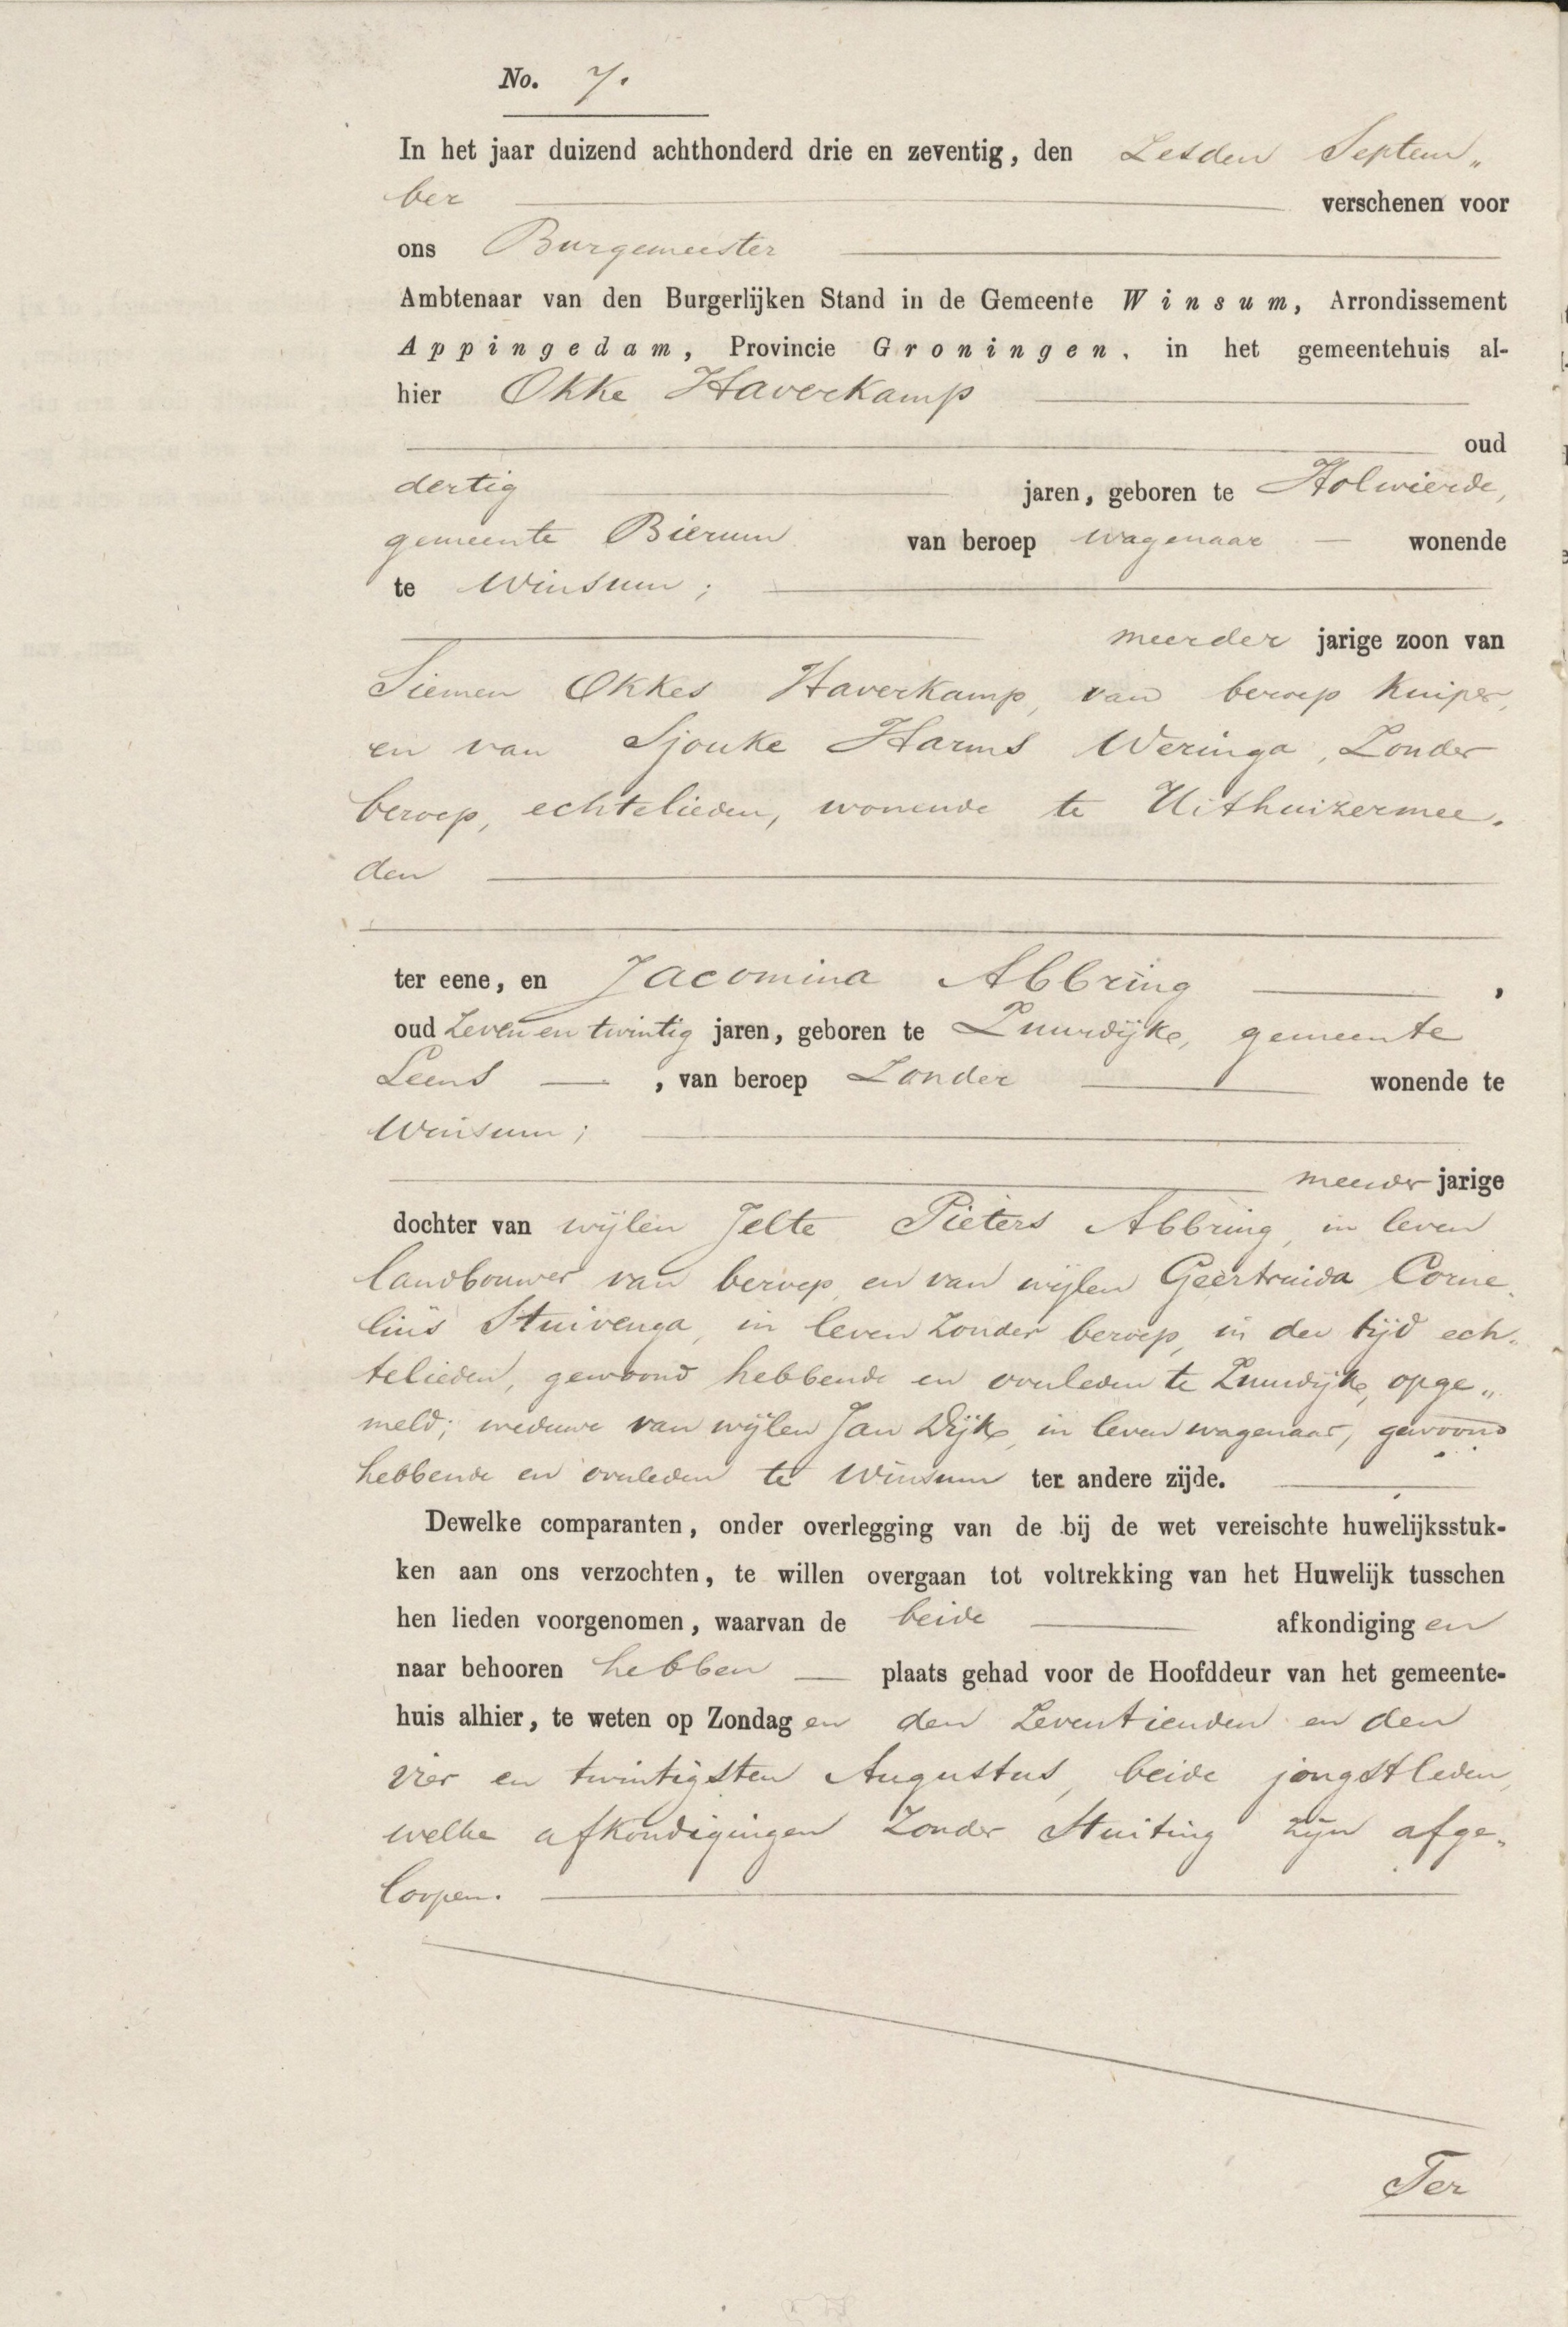 No. 7.
In het jaar duizend achthonderd drie en zeventig, den Zesden Septem„
ber verschenen voor
ons Burgemeester
Ambtenaar van den Burgerlijken Stand in de Gemeente Winsum, Arrondissement
Appingedam, Provincie Groningen, in het gemeentehuis al-
hier Okke Haverkamp
oud
dertig jaren, geboren te Holwierde,
gemeente Bierum van beroep wagenaar — wonende
te Winsum;
meerder jarige zoon van
Siemen Okkes Haverkamp, van beroep Kuiper,
en van Sjouke Harms Weringa, Zonder
beroep, echtelieden, wonende te Uithuizermee-
den
ter eene, en Jacomina Abbring ,
oud Zeven en twintig jaren, geboren te Zuurdijke, gemeente
Leens — , van beroep Zonder wonende te
Winsum;
meerder jarige
dochter van wijlen Jelte Pieters Abbring, in leven
landbouwer van beroep, en van wijlen Geertruida Corne-
lius Stuivenga, in leven Zonder beroep, in der tijd ech-
telieden, gewoond hebbende en overleden te Zuurdijke, opge„
meld; weduwe van wijlen Jan Dijk, in leven wagenaar, gewoond
hebbende en overleden te Winsum ter andere zijde.
Dewelke comparanten, onder overlegging van de bij de wet vereischte huwelijksstuk-
ken aan ons verzochten, te willen overgaan tot voltrekking van het Huwelijk tusschen
hen lieden voorgenomen, waarvan de beide afkondiging en
naar behooren hebben — plaats gehad voor de Hoofddeur van het gemeente-
huis alhier, te weten op Zondag en den Zeventienden en den
vier en twintigsten Augustus, beide jongstleden,
welke afkondigingen Zonder Stuiting zijn afge-
loopen.
Ter